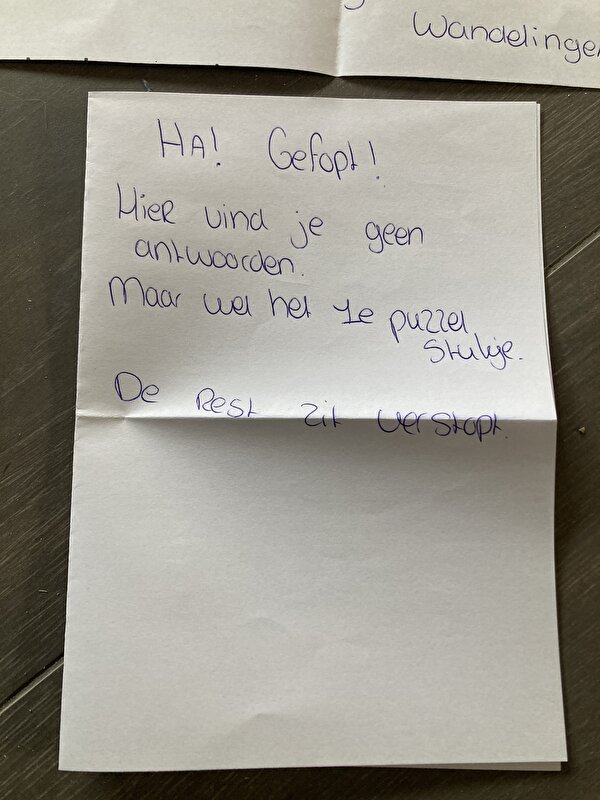 Wandelingen
HA! Gefopt!
Hier vind je geen
antwoorden.
Maar wel het 1e puzzel
stukje.
De Rest zit verstopt.